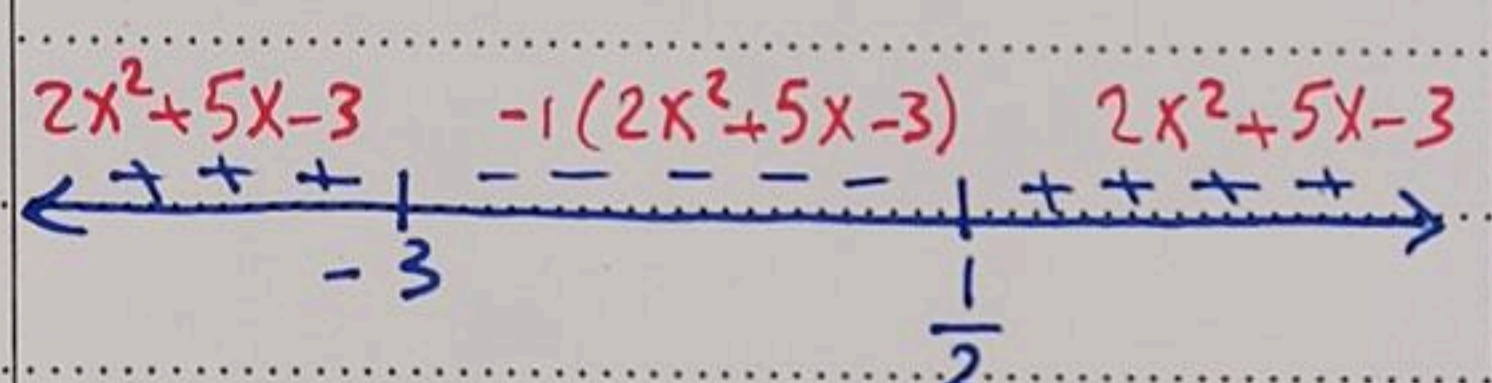 2x²+5x-3 -1(2x²+5x-3) 2x²+5x-3
+ + + - - - - - + + + +
-3 1/2